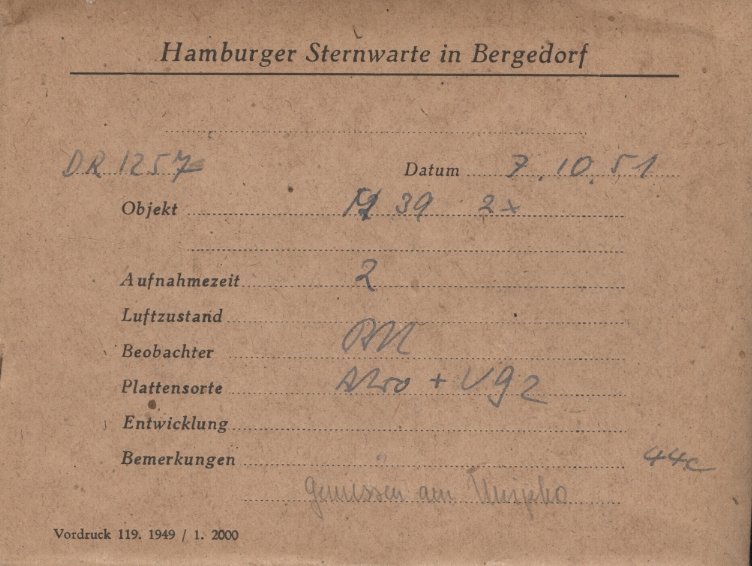 Hamburger Sternwarte in Bergedorf
DR 1257 Datum 7.10.51
Objekt 39 2x
Aufnahmezeit 2
Luftzustand
Beobachter
Plattensorte Astro + VG2
Entwicklung
Bemerkungen 44c
Gemessen am
Vordruck 119. 1949 / 1. 2000